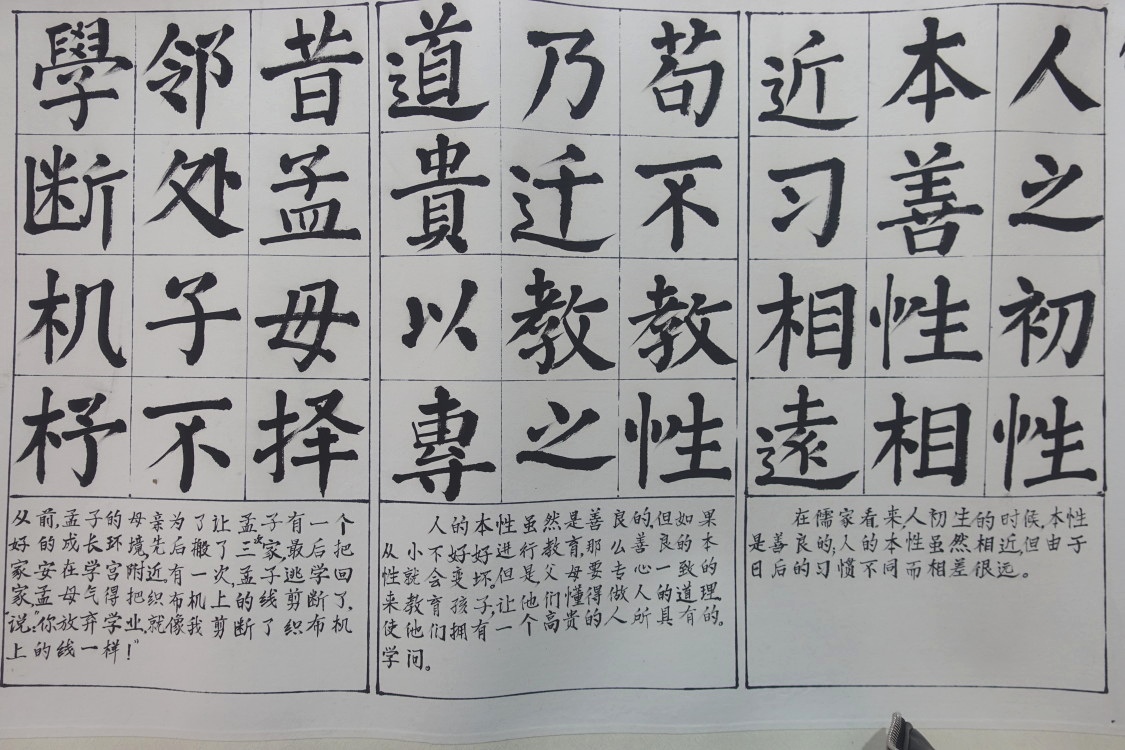 人之初性
本善性相
近习相遠
在儒家看来,人初生的时候,本性
是善良的;人的本性虽然相近,但由于
日后的习惯不同而相差很远。
苟不教性
乃迁教之
道貴以專
人的本性虽然是善良的,但如果
从小不好好进行教育,那么善良的本
性就会变坏。但是父母要专心一致的
来教育孩子,让他们懂得做人的道理
使他们拥有一个高贵的人所具有的。
学问。
昔孟母择
邻处子不
學断机杼
从前,孟子的母亲为了让孟子有一个
好的成长环境,先后搬了三次家,最后把
家安在学宫附近,有一次,孟子逃学回
家,孟母气得把织布机上的线剪断了,
说:"你放弃学业,就像我剪断了织布机
上的线一样!"